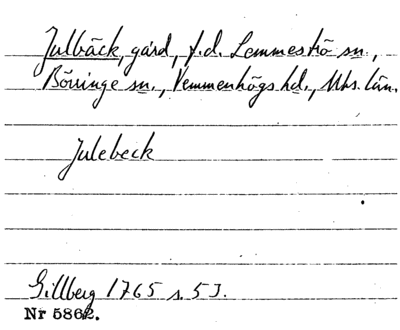 Julbäck, gård, f.d. Lemmeströ sn.,
Börringe sn., Vemmenhögs hd., Mhs. län.
Julebeck
Gillberg 1765 s. 53.
Nr 5862.